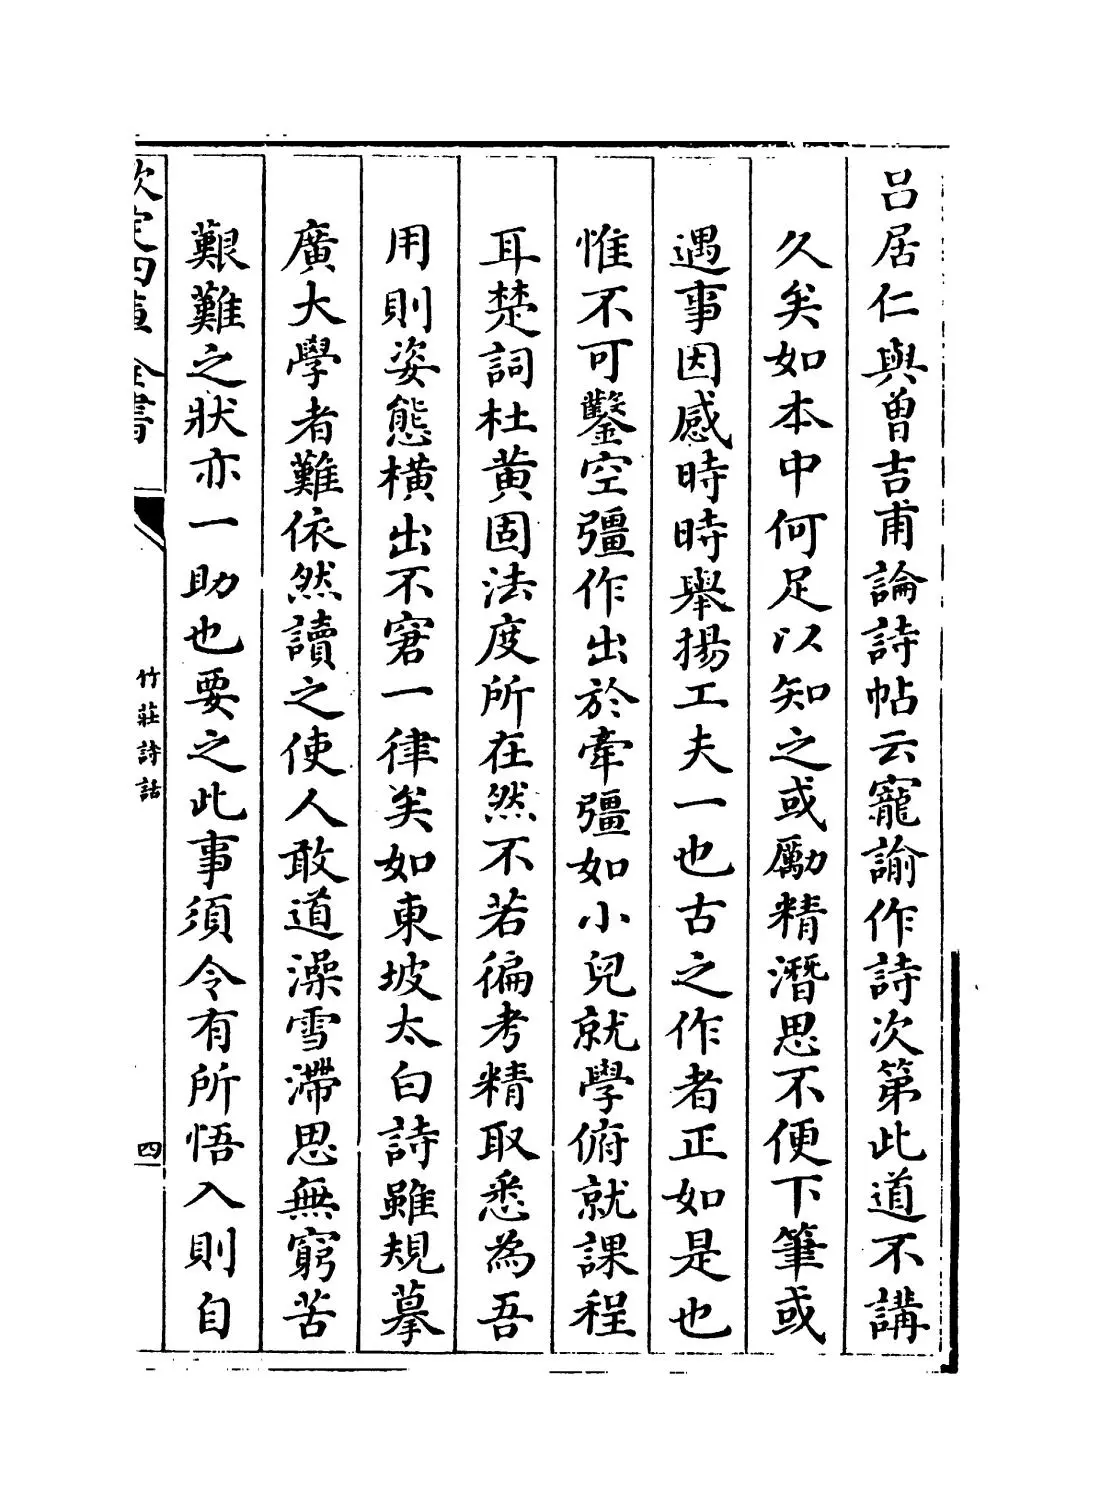 呂居仁與曾吉甫論詩帖云寵諭作詩次第此道不講
久矣如本中何足以知之或勵精潛思不便下筆或
遇事因感時時舉揚工夫一也古之作者正如是也
惟不可鑿空彊作出於牽彊如小兒就學俯就課程
耳楚詞杜黄固法度所在然不若徧考精取悉為吾
用則姿態横出不窘一律矣如東坡太白詩雖規摹
廣大學者難依然讀之使人敢道澡雪滯思無窮苦
艱難之狀亦一助也要之此事須令有所悟入則自
欽定四庫全書
竹莊詩話
四